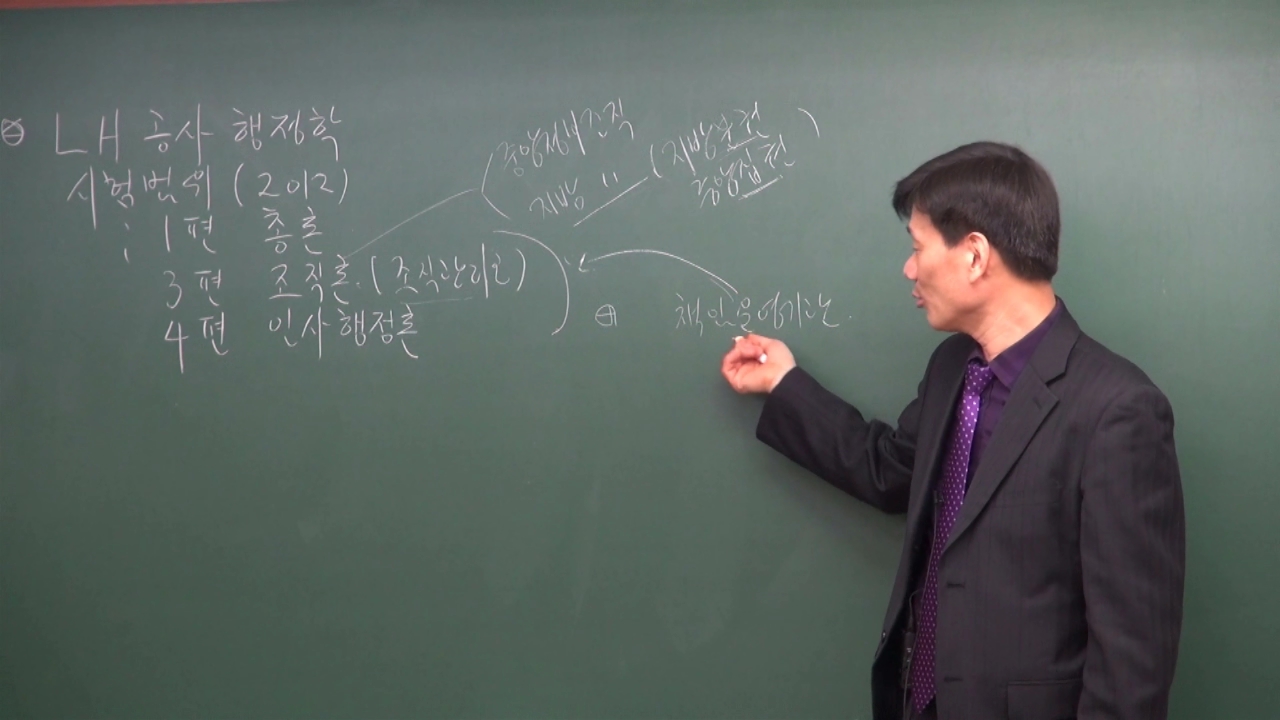 LH 공사 행정학
시험범위 (2012)
: 1편 총론
3편 조직론. (조직관리론)
4편 인사행정론
(중앙정부조직
지방 " (지방분권
중앙집권)
⊕ 책임운영기관.